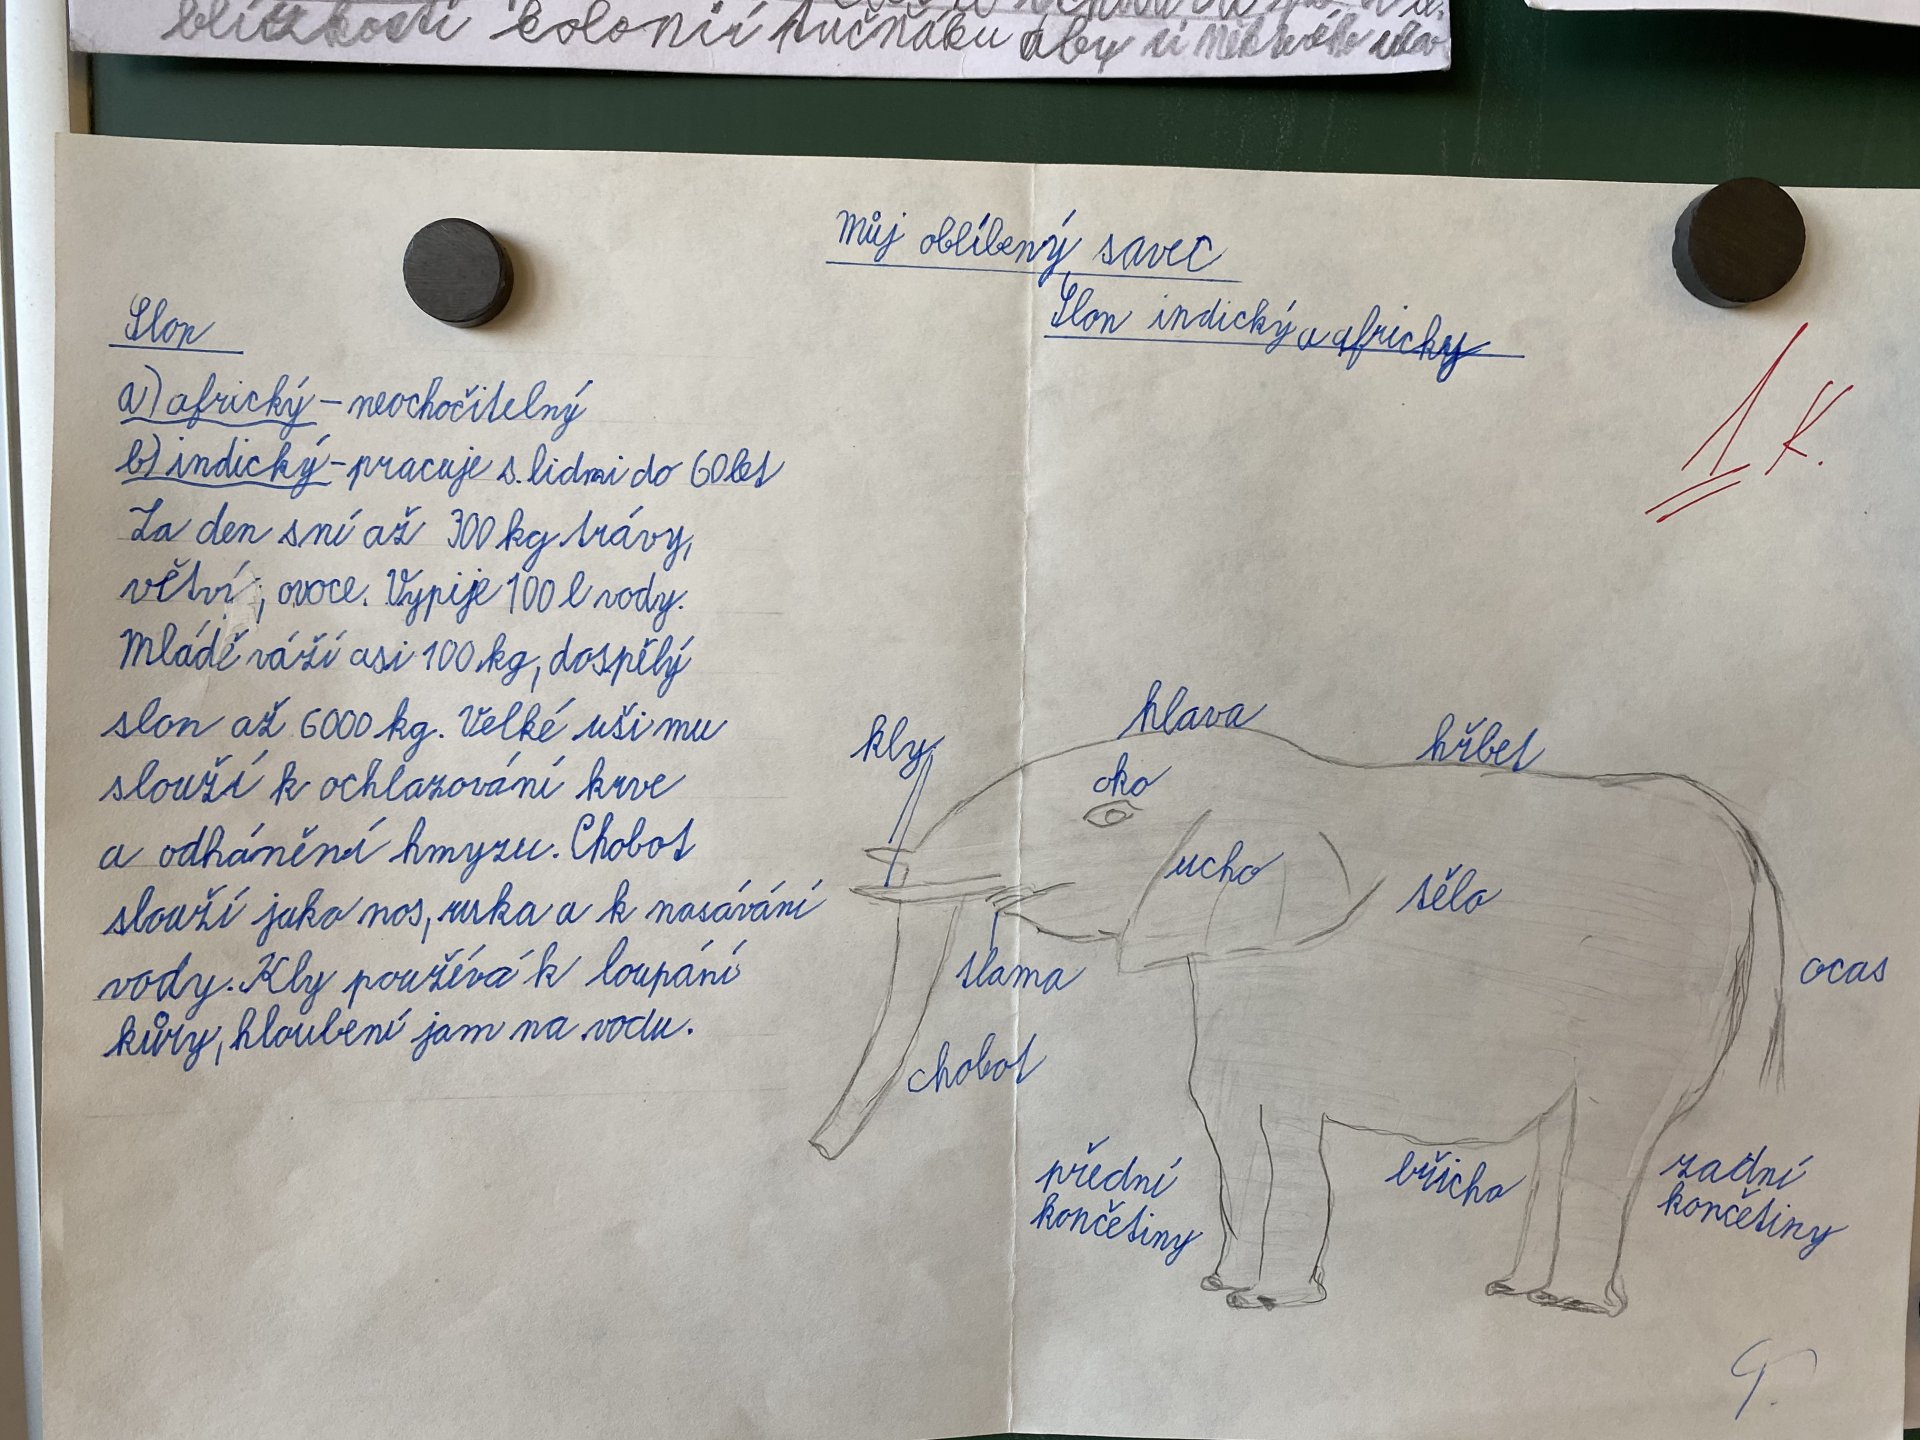 blízkosti kolonií tučňáku aby u
Můj oblíbený savec
Slon indický a africky
1 K.
Slon
a) africký - neochočitelný
b) indický - pracuje s. lidmi do 60 let
Za den sní až 300 kg trávy,
větví, ovoce. Vypije 100 l vody.
Mládě váží asi 100 kg, dospělý
slon až 6000 kg. Velké uši mu
slouží k ochlazování krve
a odhánění hmyzu. Chobot
slouží jako nos, ruka a k nasávání
vody. Kly použévá k loupání
kůry, hloubení jam na vodu.
hlava
kly
hřbet
oko
ucho
tělo
tlama
ocas
chobot
přední
končetiny
břicho
zadní
končetiny